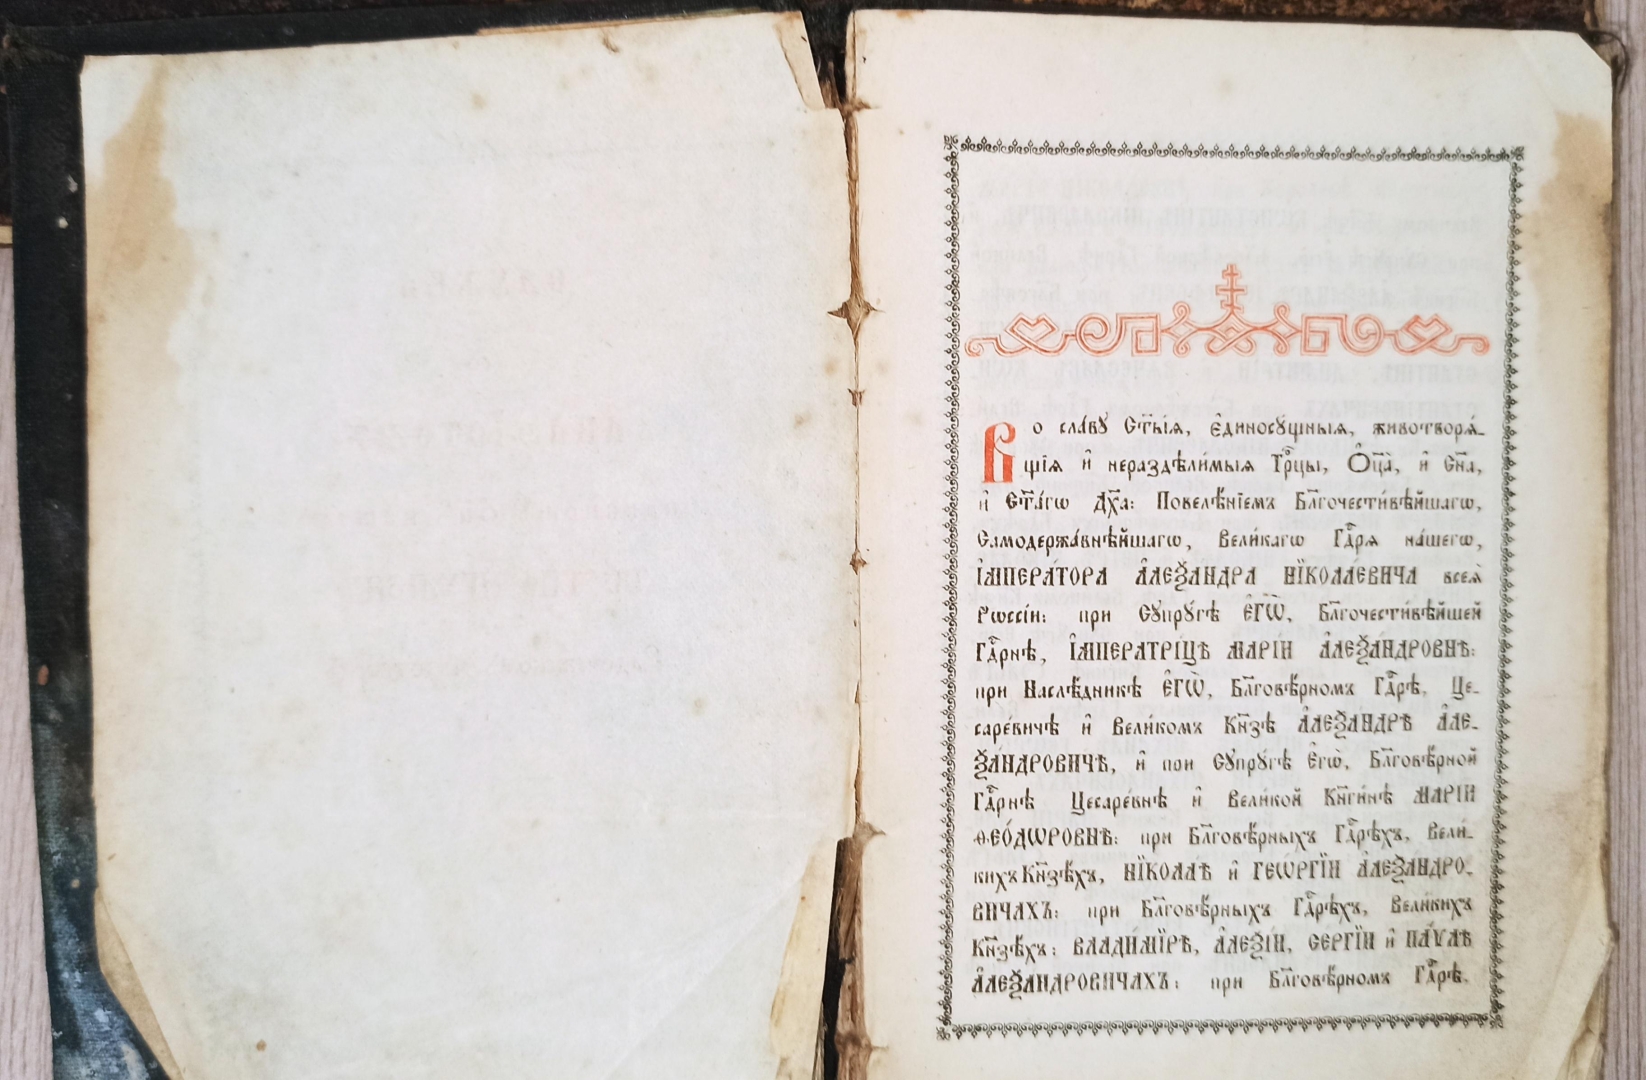 Во сла́вꙋ Ст҃ы́ѧ, є҆диносꙋ́щныѧ, животворѧ́-
щїѧ и҆ нераздѣли́мыѧ Трⷪ҇цы, Ѻ҆ц҃а̀, и҆ Сн҃а,
и҆ Ст҃а́гѡ Дх҃а: Повелѣ́нїемъ Бл҃гочести́вѣйшагѡ,
Самодержа́внѣйшагѡ, Вели́кагѡ Гдⷭ҇рѧ на́шегѡ,
І҆МПЕРА́ТОРА А҆ЛЕѮА́НДРА НЇКОЛА́ЕВИЧА всеѧ̀
Рѡссі́и: при Сꙋпрꙋ́гѣ Е҆ГѠ̀, Бл҃гочести́вѣйшей
Гдⷭ҇рнѣ, І҆МПЕРАТРІ́ЦѢ МАРІ́И А҆ЛЕѮА́НДРОВНѢ:
при Наслѣ́дникѣ Е҆ГѠ̀, Бл҃говѣ́рномъ Гдⷭ҇рѣ, Це-
саре́вичѣ и҆ Вели́комъ Кн҃зѣ А҆ЛЕѮА́НДРѢ А҆ЛЕ-
ѮА́НДРОВИЧѢ, и҆ при Сꙋпрꙋ́гѣ Е҆гѡ̀, Бл҃говѣ́рной
Гдⷭ҇рнѣ Цесаре́внѣ и҆ Вели́кой Кн҃ги́нѣ МАРІ́И
Ѳ҆ЕО́ДѠРОВНѢ: при Бл҃говѣ́рныхъ Гдⷭ҇рѣхъ, Вели́-
кихъ Кн҃зѣ́хъ, НЇКОЛА́Ѣ и҆ ГЕѠ́РГЇИ А҆ЛЕѮА́НДРО-
ВИЧАХЪ: при Бл҃говѣ́рныхъ Гдⷭ҇рѣхъ, Вели́кихъ
Кн҃зѣ́хъ: ВЛАДИ́МЇРѢ, А҆ЛЕѮІ́И, СЕ́РГЇИ и҆ ПА́ѴЛѢ
А҆ЛЕѮА́НДРОВИЧАХЪ: при Бл҃говѣ́рномъ Гдⷭ҇рѣ,